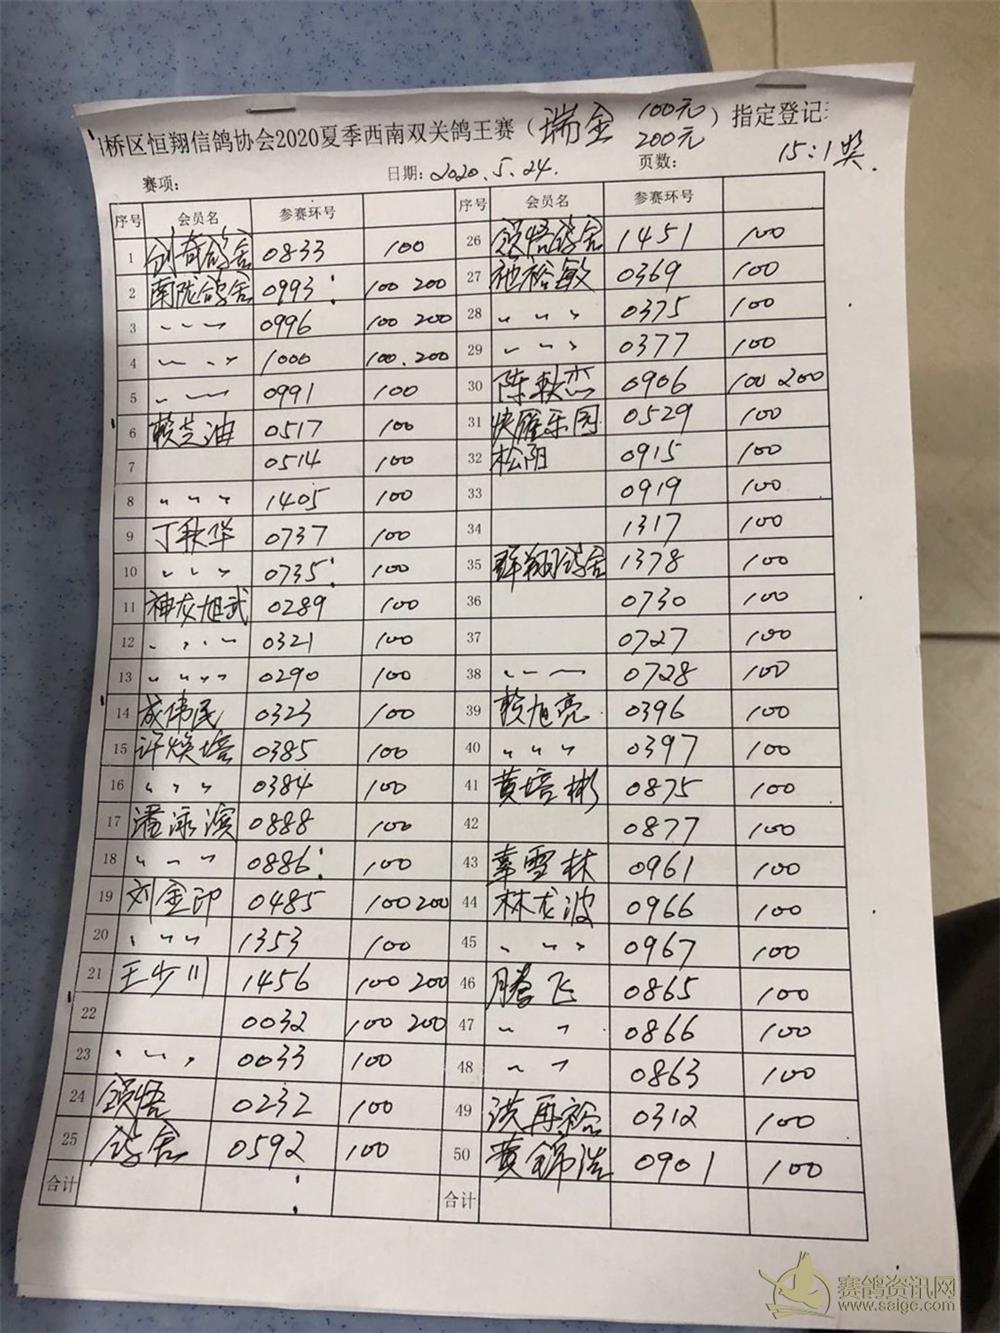 桥区恒翔信鸽协会2020夏季西南双关鸽王赛（瑞金 100元 200元）指定登记
赛项： 日期：2020.5.24. 页数： 15:1奖.
序号 会员名 参赛环号 序号 会员名 参赛环号
1 创奇鸽舍 0833 100 26 领悟鸽舍 1451 100
2 南陇鸽舍 0993 100 200 27 池裕敏 0369 100
3 〃 〃 〃 0996 100 200 28 〃 〃 〃 0375 100
4 〃 〃 〃 1000 100.200 29 〃 〃 〃 0377 100
5 〃 〃 〃 0991 100 30 陈秋杰 0906 100 200
6 赖芝油 0517 100 31 快雁乐园 0529 100
7 0514 100 32 松阳 0915 100
8 〃 〃 〃 1405 100 33 0919 100
9 丁秋华 0737 100 34 1317 100
10 〃 〃 〃 0735 100 35 群翔鸽舍 1378 100
11 神龙旭武 0289 100 36 0730 100
12 〃 〃 〃 0321 100 37 0727 100
13 〃 〃 〃 〃 0290 100 38 〃 〃 〃 0728 100
14 成伟民 0323 100 39 赖旭亮 0396 100
15 许焕培 0385 100 40 〃 〃 〃 0397 100
16 〃 〃 〃 0384 100 41 黄培彬 0875 100
17 潘泳滨 0888 100 42 0877 100
18 〃 〃 〃 0886 100 43 辜雪林 0961 100
19 刘金印 0485 100 200 44 林龙波 0966 100
20 〃 〃 〃 1353 100 45 〃 〃 〃 0967 100
21 王少川 1456 100 200 46 腾飞 0865 100
22 0032 100 200 47 〃 〃 0866 100
23 〃 〃 〃 0033 100 48 〃 〃 0863 100
24 领悟 0232 100 49 洪再裕 0312 100
25 鸽舍 0592 100 50 黄锦浩 0901 100
合计 合计
赛鸽资讯网
www.saige.com